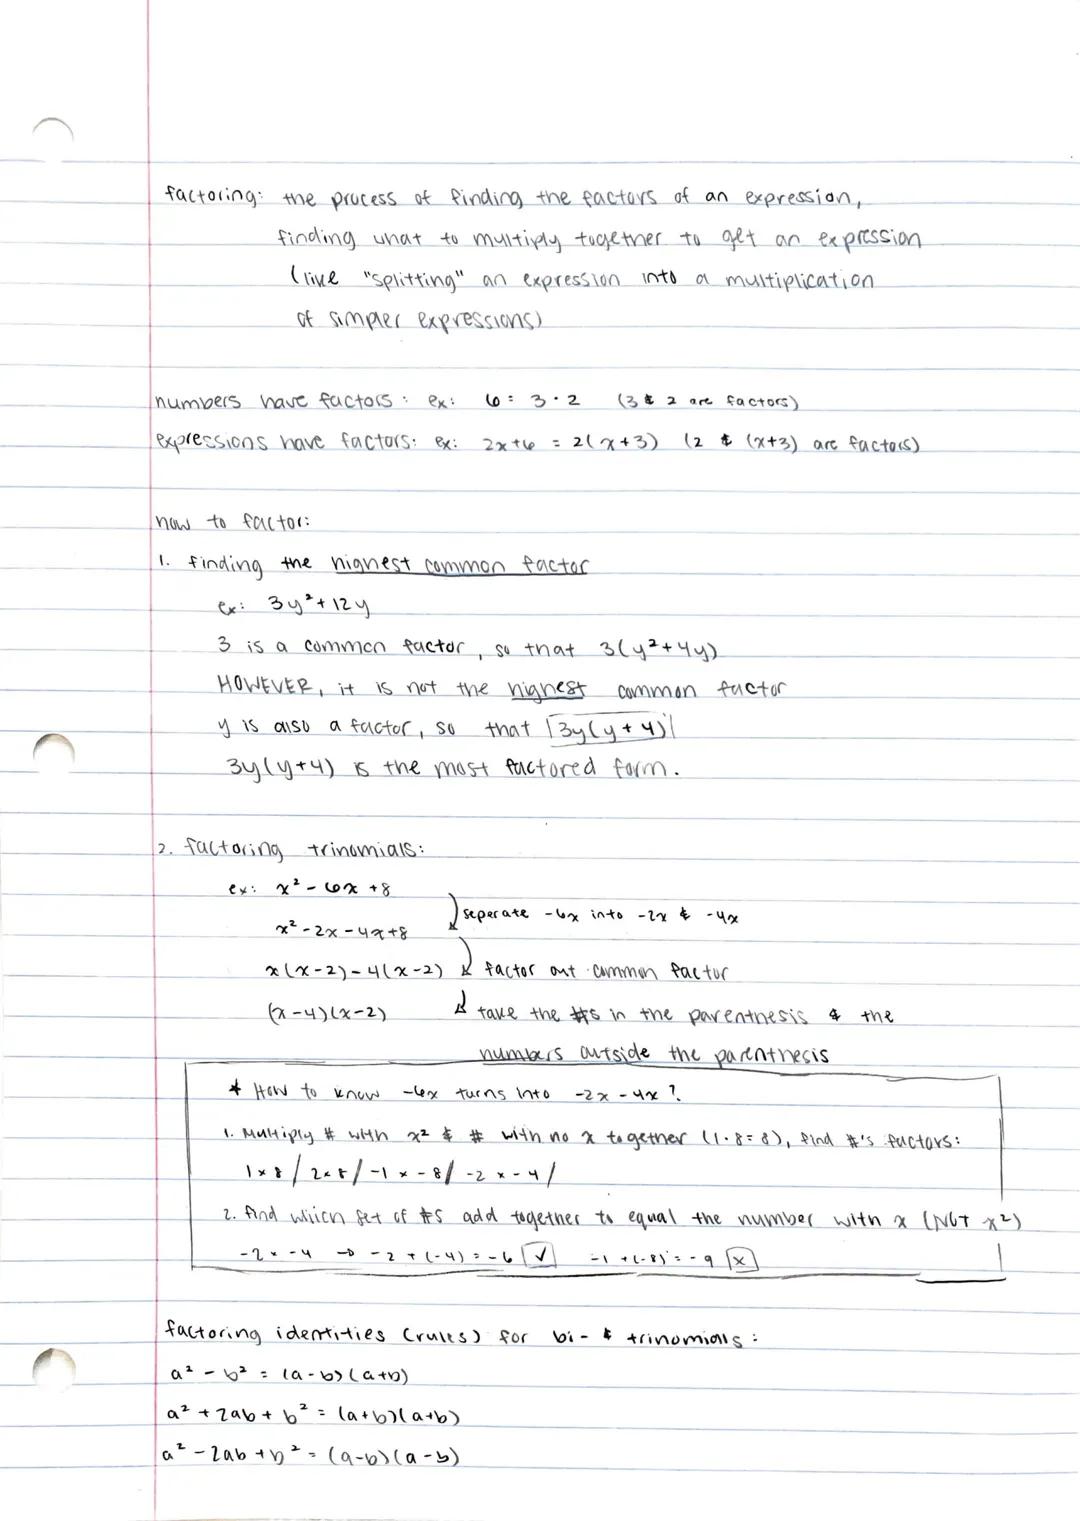 factoring: the process of finding the factors of an expression,
finding what to multiply together to get an expression
(like "splitting" an expression into a multiplication
of simpler expressions)
numbers have factors: ex: 6 = 3 · 2 (3 & 2 are factors)
expressions have factors: ex: 2x+6 = 2(x+3) (2 & (x+3) are factors)
how to factor:
1. finding the highest common factor
ex: 3y² + 12y
3 is a common factor, so that 3(y²+4y)
HOWEVER, it is not the highest common factor
y is also a factor, so that |3y(y+4)|
3y(y+4) is the most factored form.
2. factoring trinomials:
ex: x² - 6x + 8
x² - 2x - 4x + 8 seperate -6x into -2x & -4x
x(x-2) - 4(x-2) factor out common factor
(x-4)(x-2) take the #s in the parenthesis & the
numbers outside the parenthesis
* How to know -6x turns into -2x - 4x?
1. Multiply # with x² & # with no x together (1·8=8), find #'s factors:
1×8 / 2×8 / -1 × -8 / -2 × -4 /
2. find which set of #s add together to equal the number with x (NOT x²)
-2 × -4 → -2 + (-4) = -6 ✓ -1 + (-8) = -9 x
factoring identities (rules) for bi- & trinomials:
a² - b² = (a-b)(a+b)
a² + 2ab + b² = (a+b)(a+b)
a² - 2ab + b² = (a-b)(a-b)